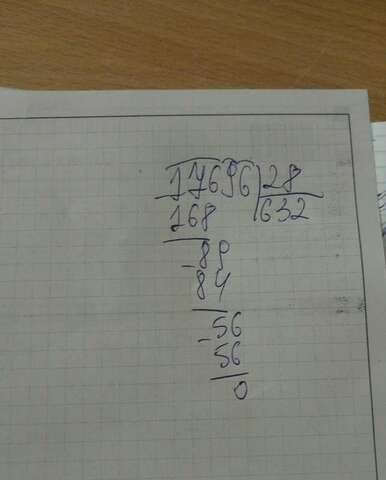 17696 28
168 632
- 89
84
- 56
56
0